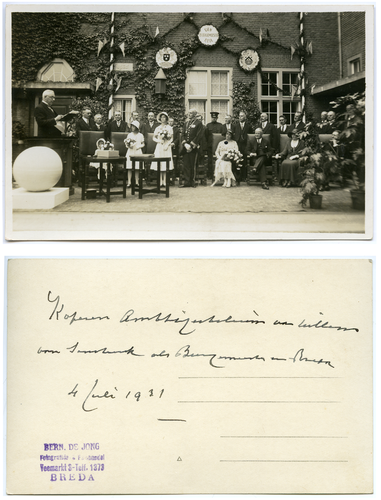 Koperen Ambtsjubileum van Willem
van Sonsbeeck als Burgemeester van Breda
4 Juli 1931
BERN. DE JONG
Fotografie &
Veemarkt 3-Telf. 1373
BREDA